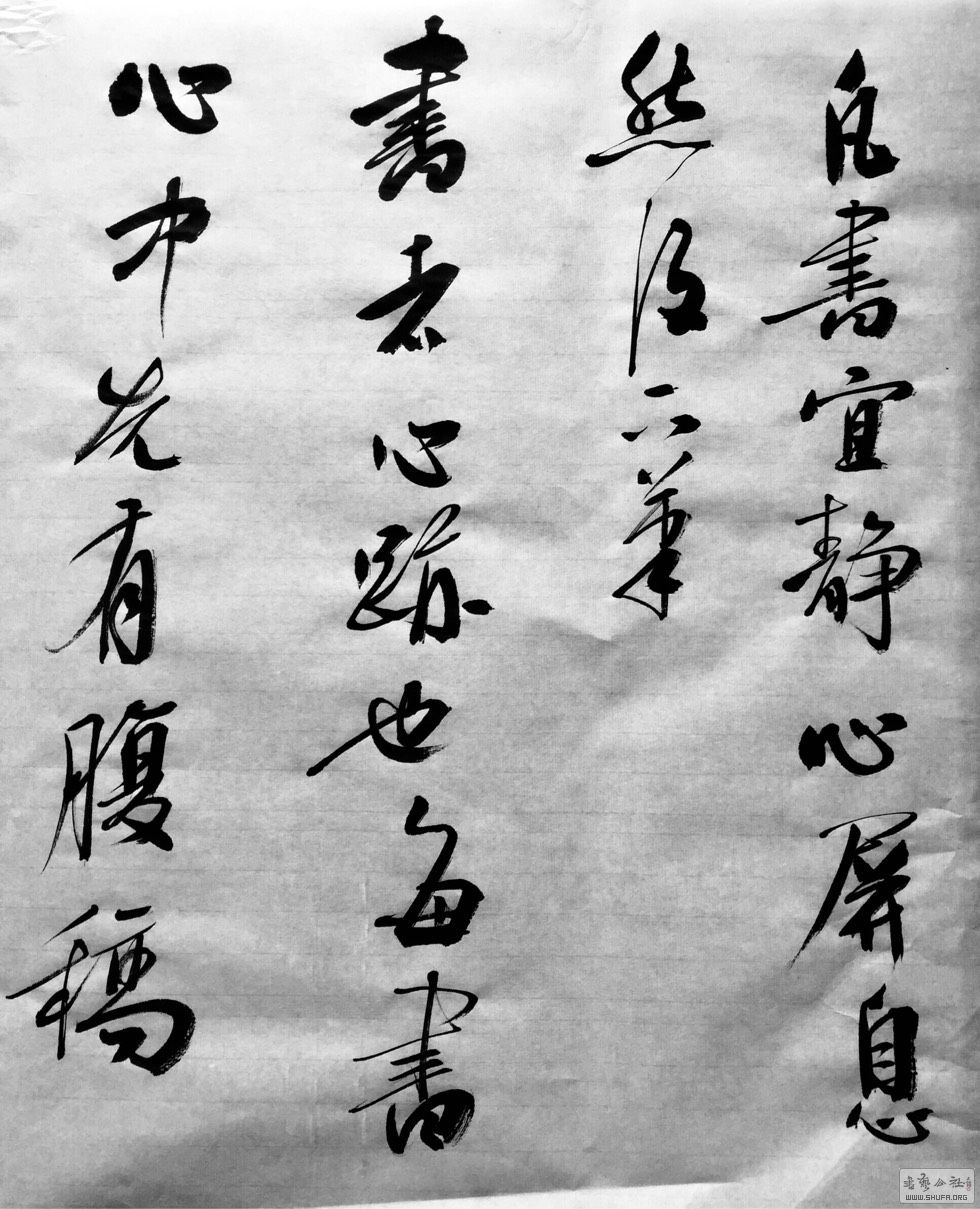 凡書宜静心屏息
然後下筆
書者心跡也每書
心中先有腹稿
書艺公社
WWW.SHUFA.ORG